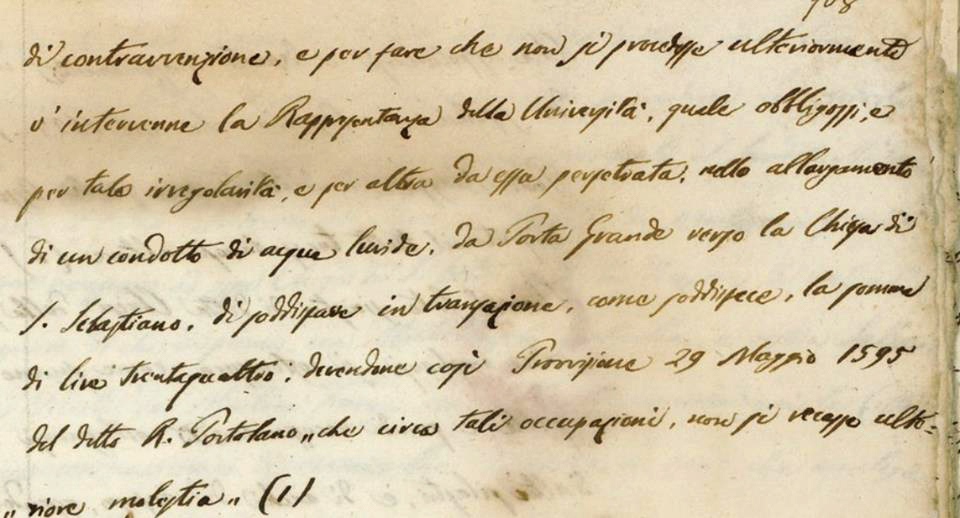 di contravvenzione, e per fare che non si procedesse ulteriormente
v' intervenne la Rappresentanza della Università, quale obbligossi, e
per tale irregolarità, e per altra da essa perpetrata, nello allargamento
di un condotto di acque luride, da Porta Grande verso la Chiesa di
S. Sebastiano, di soddisfare in transazione, come soddisfece, la somma
di lire trentaquattro; devendone così Provvisione 29 Maggio 1595
del detto R. Portolano „ che circa tali occupazioni, non si recasse ulte=
„ riore molestia „ (1)